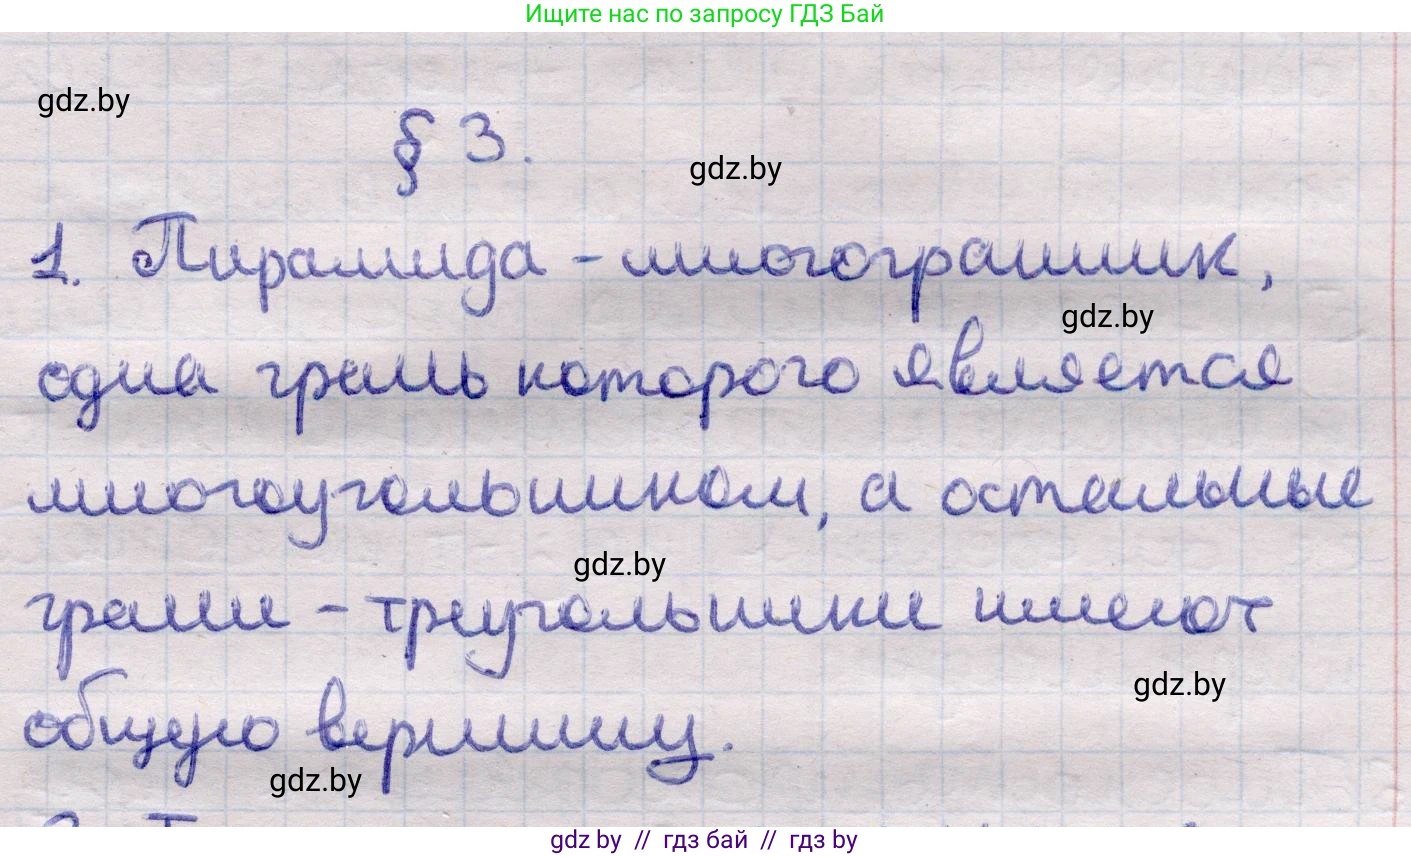 Ищите нас по запросу ГДЗ Бай
gdz.by
§ 3.
gdz.by
1. Пирамида - многогранник,
gdz.by
одна грань которого является
многоугольником, а остальные
gdz.by
грани - треугольники имеют
gdz.by
общую вершину.
gdz.by
gdz.by // гдз бай // гдз by